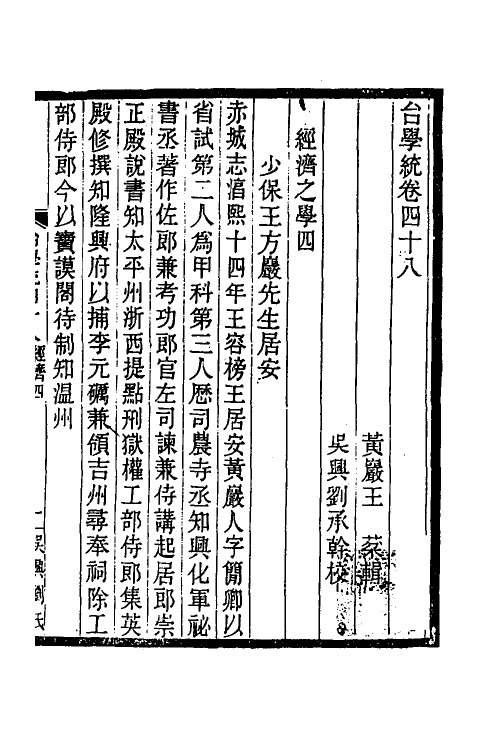 台學統卷四十八
黃巖王 棻輯
吳興劉承幹校
經濟之學四
少保王方巖先生居安
赤城志淳熙十四年王容榜王居安黃巖人字簡卿以
省試第二人爲甲科第三人歷司農寺丞知興化軍祕
書丞著作佐郎兼考功郎官左司諫兼侍講起居郎崇
正殿說書知太平州浙西提點刑獄權工部侍郎集英
殿修撰知隆興府以捕李元礪兼領吉州尋奉祠除工
部侍郎今以寶謨閣待制知温州
台學統卷四十八 經濟四
一 吳興劉氏